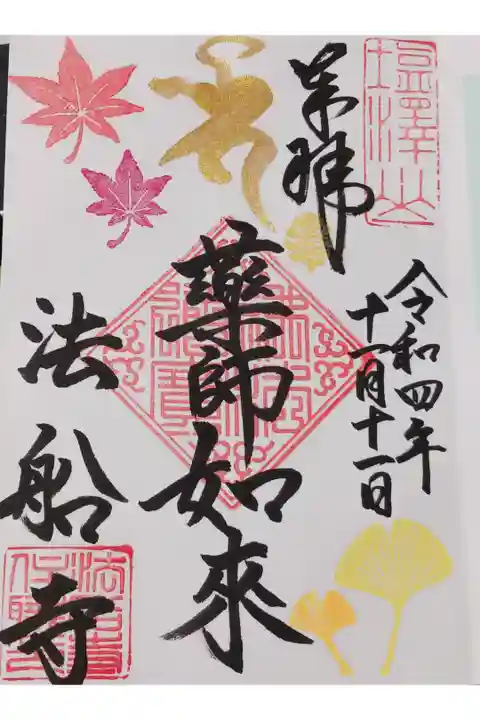 奉拝
塩澤山
令和四年
十一月十一日
薬師如來
法船寺